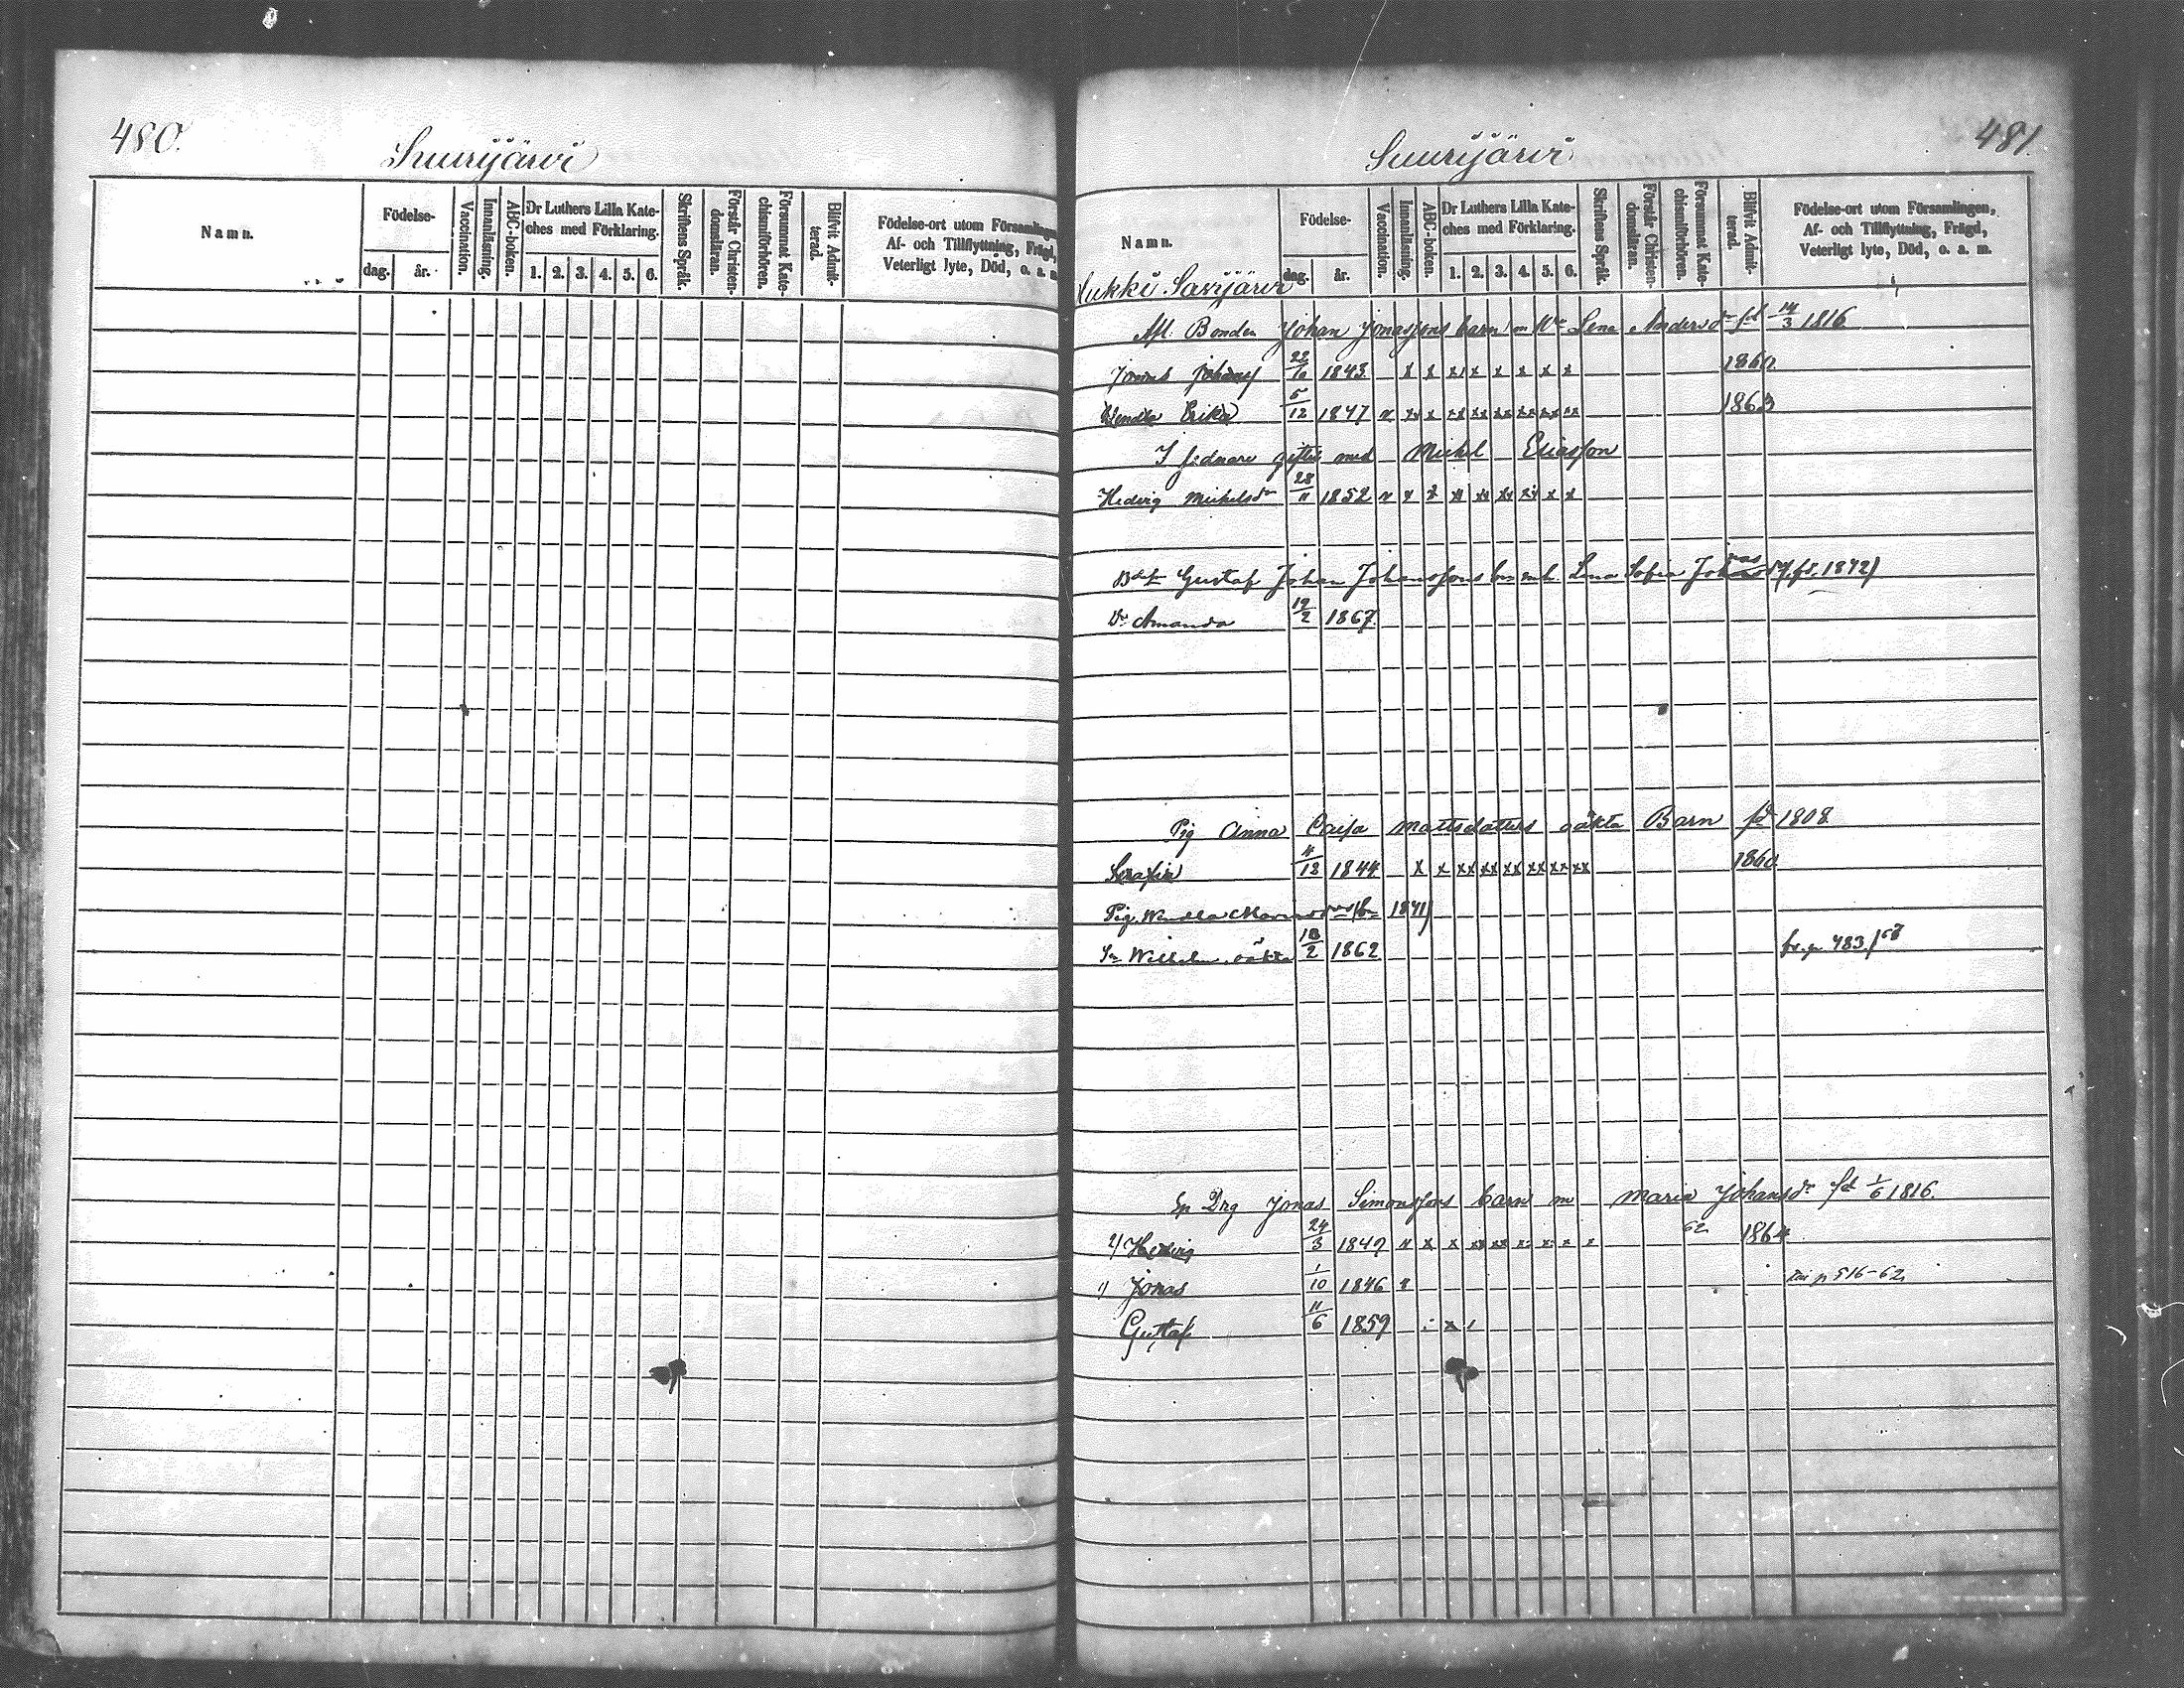 480.
Suurijärvi
Namn.
Födelse-
dag.
år.
Vaccination.
Innanläsning.
ABC-boken.
Dr Luthers Lilla Kate-
ches med Förklaring.
1. 2. 3. 4. 5. 6.
Skriftens Språk.
Förstår Christen-
domsläran.
Försummat Kate-
chismiförhören.
Blifvit Admit-
terad.
Födelse-ort utom Församlingen,
Af- och Tillflyttning, Frägd,
Veterligt lyte, Död, o. a. m.
481.
Suurijärvi
Namn.
Födelse-
dag.
år.
Vaccination.
Innanläsning.
ABC-boken.
Dr Luthers Lilla Kate-
ches med Förklaring.
1. 2. 3. 4. 5. 6.
Skriftens Språk.
Förstår Christen-
domsläran.
Försummat Kate-
chismiförhören.
Blifvit Admit-
terad.
Födelse-ort utom Församlingen,
Af- och Tillflyttning, Frägd,
Veterligt lyte, Död, o. a. m.
Afl. Bonden Johan Jonassons barn m Lena Andersdr fd 14/3 1816
Jonas 1843 x x x x x x x x 1860
Wendla Erika 5/12 1847 x xx x xx xx xx xx xx xx 1863
I sednare gifte med Mickel Eliasson
Hedvig Mickelsdr 28/11 1852
Gustaf Johan Johanssons Lena Sofia 1842)
Dr Amanda 19/2 1867.
Pig Anna Caisa Mattsdotters oäkta Barn fd 1808
Serafia 1844 x x xx xx xx xx xx xx 1860
Pig. Wendla 1841)
Sn Wilhelm oäkta 1862 fr. p. 483 / 68
Jonas Simonssons barn m Maria Johansdr fd 1/6 1816.
2) Hedvig 24/3 1849 62 1864
1) Jonas 1/10 1846 p 516-62
Gustaf 11/6 1859